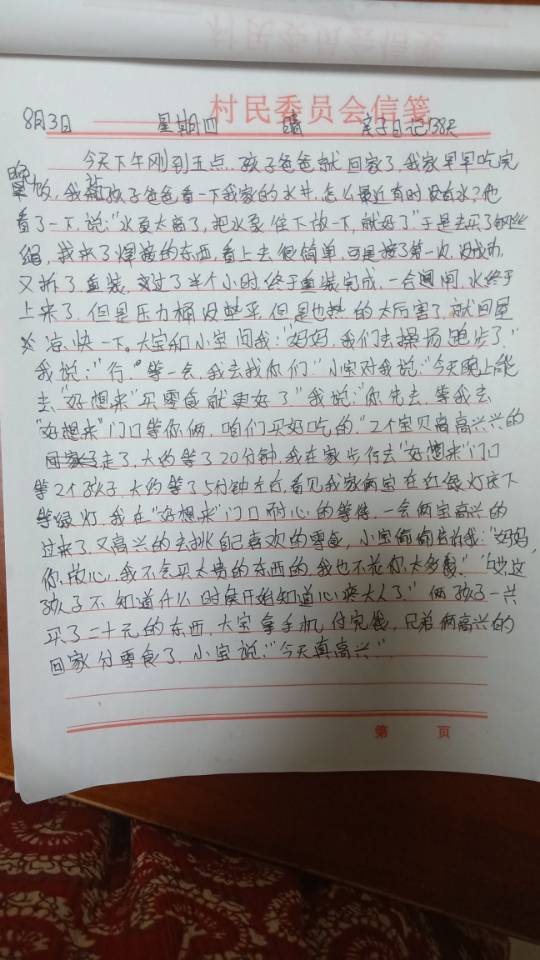 村民委员会信笺
8月3日 星期四 晴 亲子日记38天
今天下午刚到五点,孩子爸爸就回家了,我家早早吃完
晚饭,我让孩子爸爸看一下我家的水井,怎么最近有时没有水?他
看了一下,说:"水泵太高了,把水泵往下放一下,就好了"于是去买了钢丝
绳,我来了焊接的东西,看上去很简单,可是接了第一次,没成功,
又拆了重装,又过了半个小时终于重装完成,一合闸,水终于
上来了,但是压力桶没整平,但是也热的太厉害了,就回屋
凉快一下。大宝和小宝问我:"妈妈,我们去操场跑步了,"
我说:"行,"等一会,我去找你们"小宝对我说:"今天晚上能
去"好想来"买零食就更好了"我说:"你先去,等我去
"好想来"门口等你俩,咱们买好吃的"2个宝贝高高兴兴的
走了,大约等了20分钟,我在家步行去"好想来"门口
等2个孩子,大约等了5分钟左右,看见我家俩宝在红绿灯底下
等绿灯,我在"好想来"门口耐心的等待,一会俩宝高兴的
过来了,又高兴的去挑自己喜欢的零食,小宝偷偷告诉我:"妈妈,
你放心,我不会买太贵的东西的,我也不花你太多钱,"哎,这
孩子不知道什么时候开始知道心疼大人了"俩孩子一共
买了二十元的东西,大宝拿手机付完钱,兄弟俩高兴的
回家分零食了,小宝说:"今天真高兴"
第 页